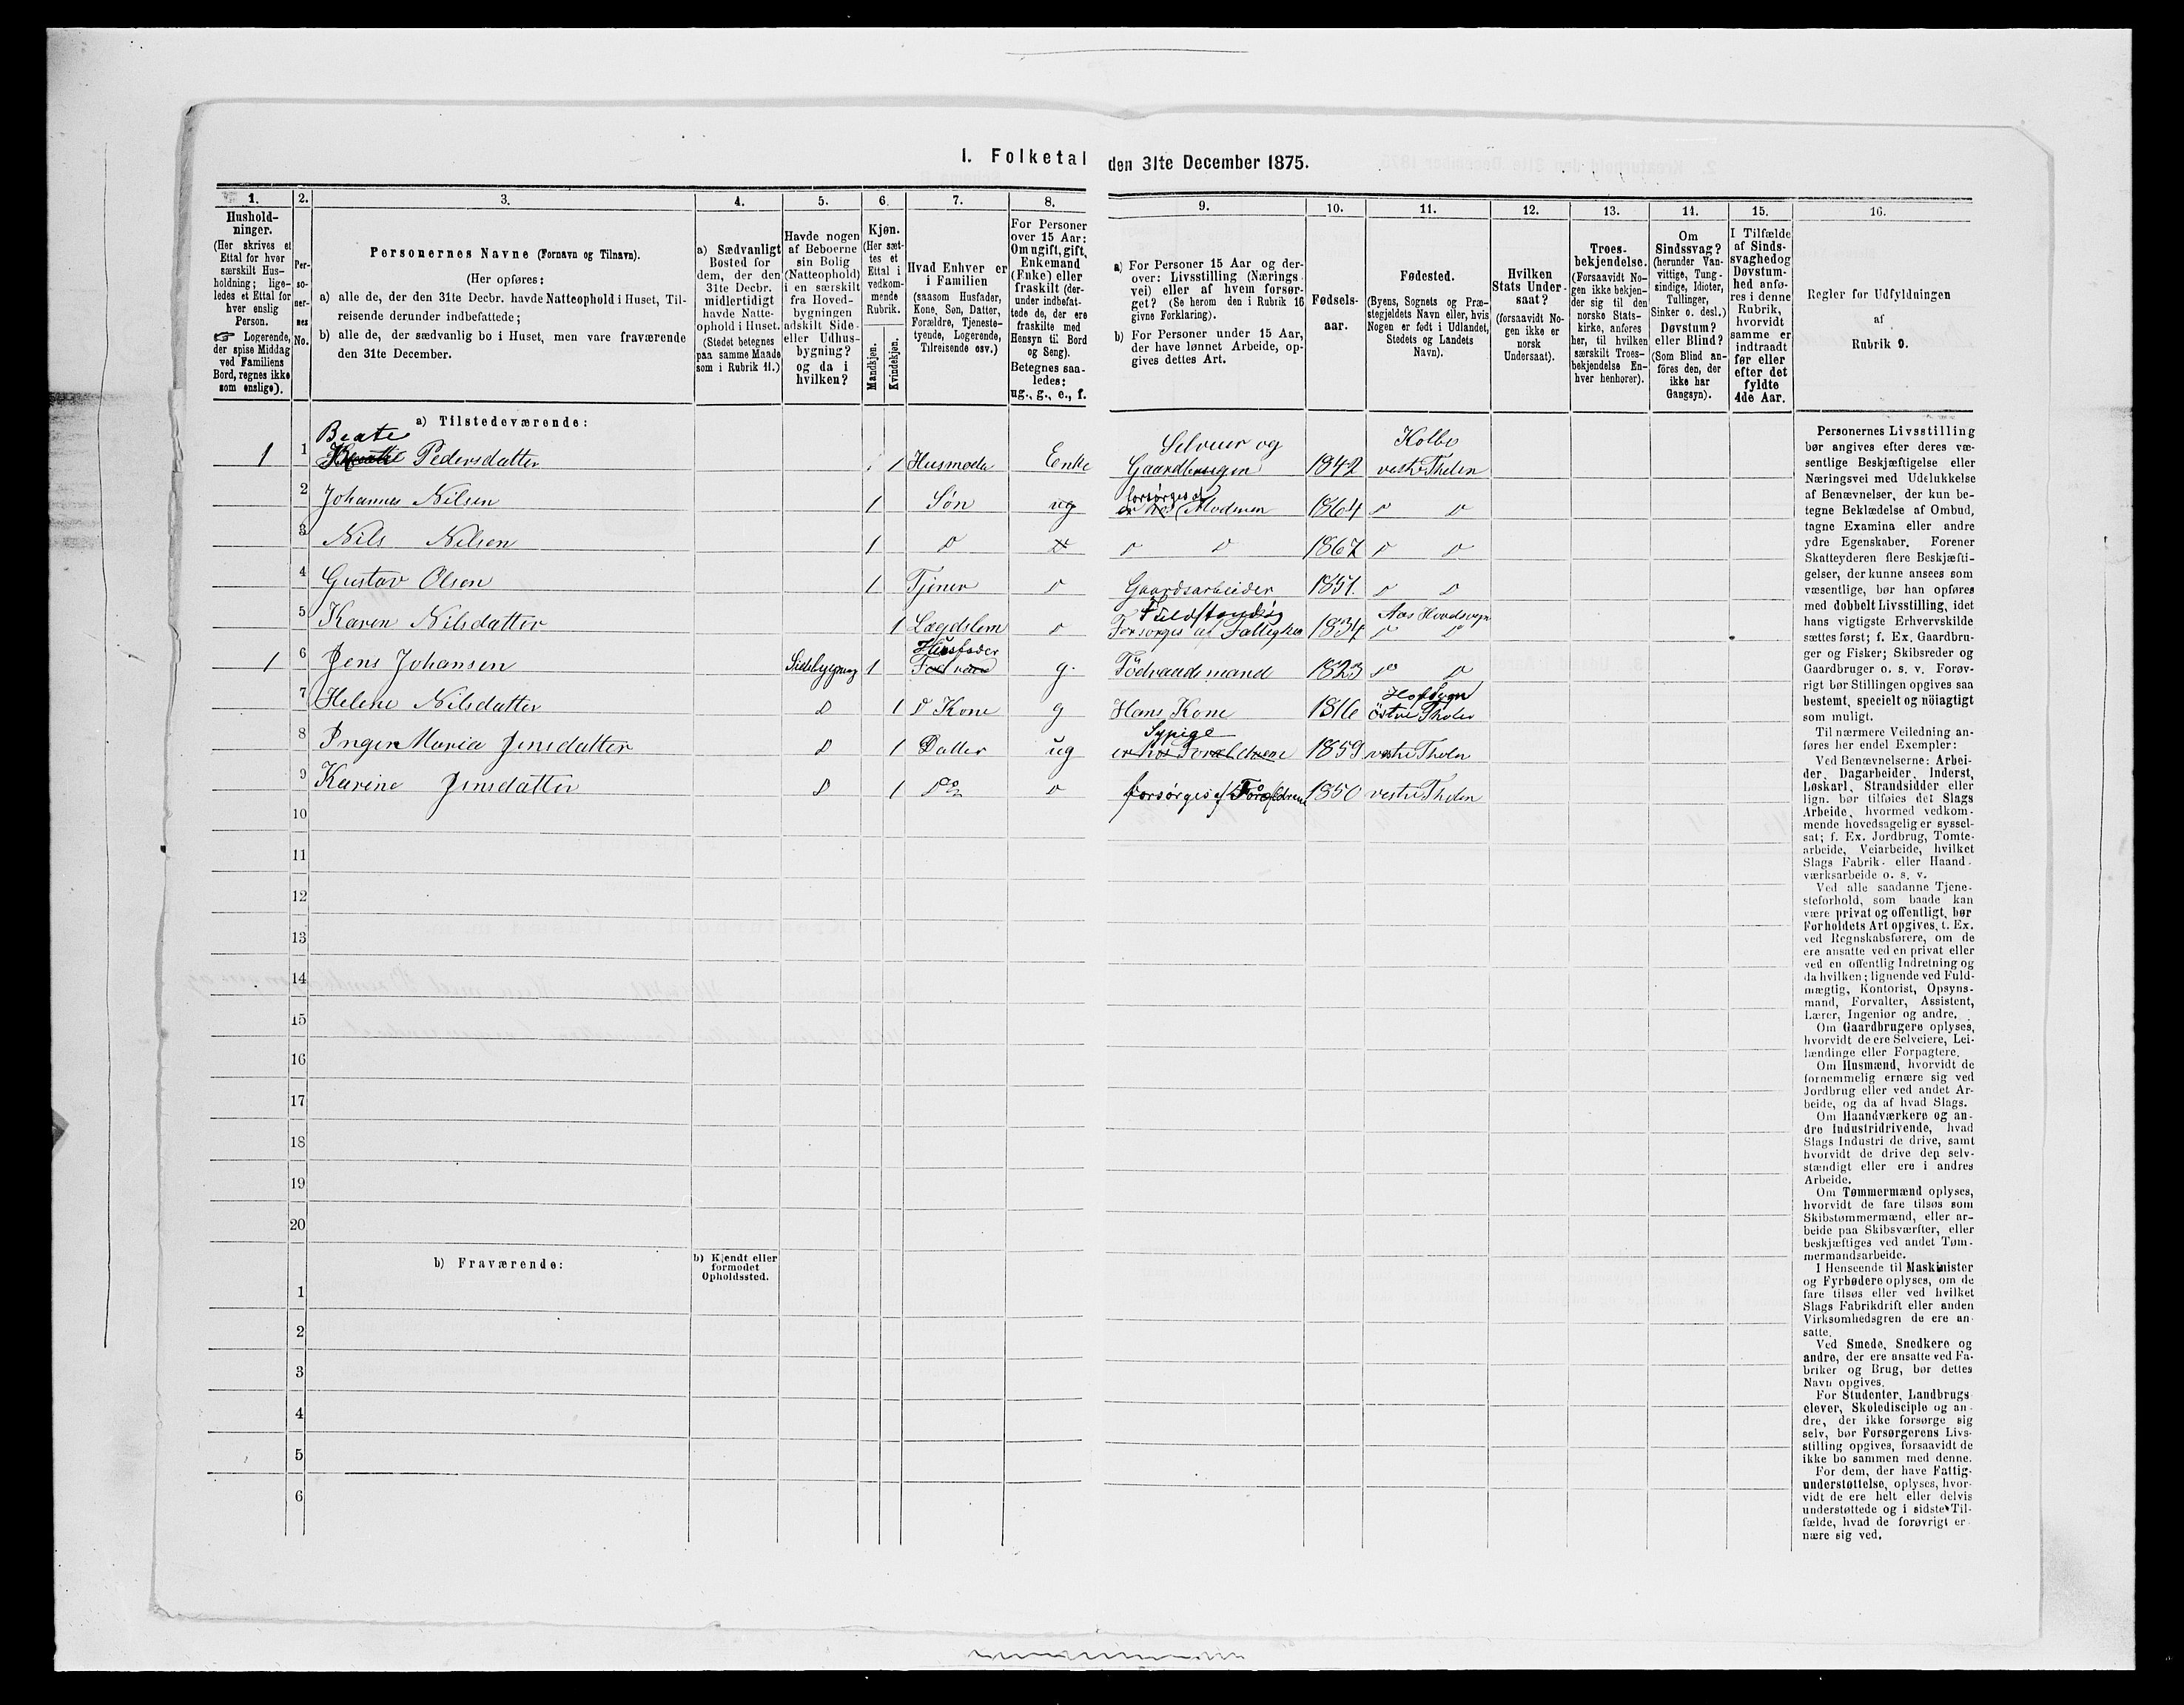 I. Folketal den 31te December 1875.
1. 2. 3. 4. 5. 6. 7. 8. 9. 10. 11. 12. 13. 14. 15. 16.
Hushold-
ninger.
(Her skrives et
Ettal for hver
særskilt Hus-
holdning; lige-
ledes et Ettal for
hver enslig
Person.
☞ Logerende,
der spise Middag
ved Familiens
Bord, regnes ikke
som enslige).
Per-
so-
ner-
nes
No.
Personernes Navne (Fornavn og Tilnavn).
(Her opføres:
a) alle de, der den 31te Decbr. havde Natteophold i Huset, Til-
reisende derunder indbefattede;
b) alle de, der sædvanlig bo i Huset, men vare fraværende
den 31te December.
a) Sædvanligt
Bosted for
dem, der den
31te Decbr.
midlertidigt
havde Natte-
ophold i Huset.
(Stedet betegnes
paa samme Maade
som i Rubrik 11.)
Havde nogen
af Beboerne
sin Bolig
(Natteophold)
i en særskilt
fra Hoved-
bygningen
adskilt Side-
eller Udhus-
bygning?
og da i
hvilken?
Kjøn.
(Her sæt-
tes et
Ettal i
vedkom-
mende
Rubrik.
Mandkjøn.
Kvindekjøn.
Hvad Enhver er
i Familien
(saasom Husfader,
Kone, Søn, Datter,
Forældre, Tjeneste-
tyende, Logerende,
Tilreisende osv.)
For Personer
over 15 Aar:
Om ugift, gift,
Enkemand
(Enke) eller
fraskilt (der-
under indbefat-
tede de, der ere
fraskilte med
Hensyn til Bord
og Seng).
Betegnes saa-
ledes:
ug., g., e., f.
a) For Personer 15 Aar og der-
over: Livsstilling (Nærings-
vei) eller af hvem forsør-
get? (Se herom den i Rubrik 16
givne Forklaring).
b) For Personer under 15 Aar,
der have lønnet Arbeide, op-
gives dettes Art.
Fødsels-
aar.
Fødested.
(Byens, Sognets og Præ-
stegjeldets Navn eller, hvis
Nogen er født i Udlandet,
Stedets og Landets
Navn).
Hvilken
Stats Under-
saat?
(forsaavidt No-
gen ikke er
norsk
Undersaat).
Troes-
bekjendelse.
(Forsaavidt No-
gen ikke bekjen-
der sig til den
norske Stats-
kirke, anføres
her, til hvilken
særskilt Troes-
bekjendelse En-
hver henhører).
Om
Sindssvag?
(herunder Van-
vittige, Tung-
sindige, Idioter,
Tullinger,
Sinker o. desl.)
Døvstum?
eller Blind?
(Som Blind an-
føres den, der
ikke har
Gangsyn).
I Tilfælde
af Sinds-
svaghed og
Døvstum-
hed anfø-
res i denne
Rubrik,
hvorvidt
samme er
indtraadt
før eller
efter det
fyldte
4de Aar.
Regler for Udfyldningen
af
Rubrik 9.
a) Tilstedeværende:
Beate Selveier og Kolbo
1 1 Pedersdatter 1 Husmoder Enke Gaardbruger 1842 vestre Thoten
2 Johannes Nilsen 1 Søn ug forsørges af Moderen 1864 D D
3 Nils Nilsen 1 D D D 1867 D D
4 Gustav Olsen 1 Tjener D Gaardsarbeider 1851. D D
Fuldstændig Aas Hovedsogn
5 Karen Nilsdatter 1 Lægdslem D Forsørges af Fattigk 1834 D D
Husfader
1 6 Jens Johansen Sidebygning 1 g. Födraadsmand 1823 D D
Hofsogn
7 Helene Nilsdatter D 1 D Kone g Hans Kone 1816 östre Thoten
Sypige
8 Inger Maria Jensdatter D 1 Datter ug er hos Forældrene 1859 vestre Thoten
9 Karine Jensdatter D 1 Do D forsørges af Forældrene 1850 vestre Thoten
10
11
12
13
14
15
16
17
18
19
20
b) Fraværende:
b) Kjendt eller
formodet
Opholdssted.
1
2
3
4
5
6
Personernes Livsstilling
bør angives efter deres væ-
sentlige Beskjæftigelse eller
Næringsvei med Udelukkelse
af Benævnelser, der kun be-
tegne Beklædelse af Ombud,
tagne Examina eller andre
ydre Egenskaber. Forener
Skatteyderen flere Beskjæfti-
gelser, der kunne ansees som
væsentlige, bør han opføres
med dobbelt Livsstilling, idet
hans vigtigste Erhvervskilde
sættes først; f. Ex. Gaardbru-
ger og Fisker; Skibsreder og
Gaardbruger o. s. v. Forøv-
rigt bør Stillingen opgives saa
bestemt, specielt og nöiagtigt
som muligt.
Til nærmere Veiledning an-
føres her endel Exempler:
Ved Benævnelserne: Arbei-
der, Dagarbeider, Inderst,
Løskarl, Strandsidder eller
lign. bør tilføies det Slags
Arbeide, hvormed vedkom-
mende hovedsagelig er syssel-
sat; f. Ex. Jordbrug, Tomte-
arbeide, Veiarbeide, hvilket
Slags Fabrik- eller Haand-
værksarbeide o. s. v.
Ved alle saadanne Tjene-
steforhold, som baade kan
være privat og offentligt, bør
Forholdets Art opgives, t. Ex.
ved Regnskabsførere, om de
ere ansatte ved en privat eller
ved en offentlig Indretning og
da hvilken; lignende ved Fuld-
mægtig, Kontorist, Opsyns-
mand, Forvalter, Assistent,
Lærer, Ingeniør og andre.
Om Gaardbrugere oplyses,
hvorvidt de ere Selveiere, Lei-
lændinge eller Forpagtere.
Om Husmænd, hvorvidt de
fornemmelig ernære sig ved
Jordbrug eller ved andet Ar-
beide, og da af hvad Slags.
Om Haandværkere og an-
dre Industridrivende, hvad
Slags Industri de drive, samt
hvorvidt de drive den selv-
stændigt eller ere i andres
Arbeide.
Om Tømmermænd oplyses,
hvorvidt de fare tilsøs som
Skibstømmermænd, eller ar-
beide paa Skibsværfter, eller
beskjæftiges ved andet Tøm-
mermandsarbeide.
I Henseende til Maskinister
og Fyrbødere oplyses, om de
fare tilsøs eller ved hvilket
Slags Fabrikdrift eller anden
Virksomhedsgren de ere an-
satte.
Ved Smede, Snedkere og
andre, der ere ansatte ved Fa-
briker og Brug, bør dettes
Navn opgives.
For Studenter, Landbrugs-
elever, Skoledisciple og an-
dre, der ikke forsørge sig
selv, bør Forsørgerens Livs-
stilling opgives, forsaavidt de
ikke bo sammen med denne.
For dem, der have Fattig-
understøttelse, oplyses, hvor-
vidt de ere helt eller delvis
understøttede og i sidste Til-
fælde, hvad de forøvrigt er-
nære sig ved.